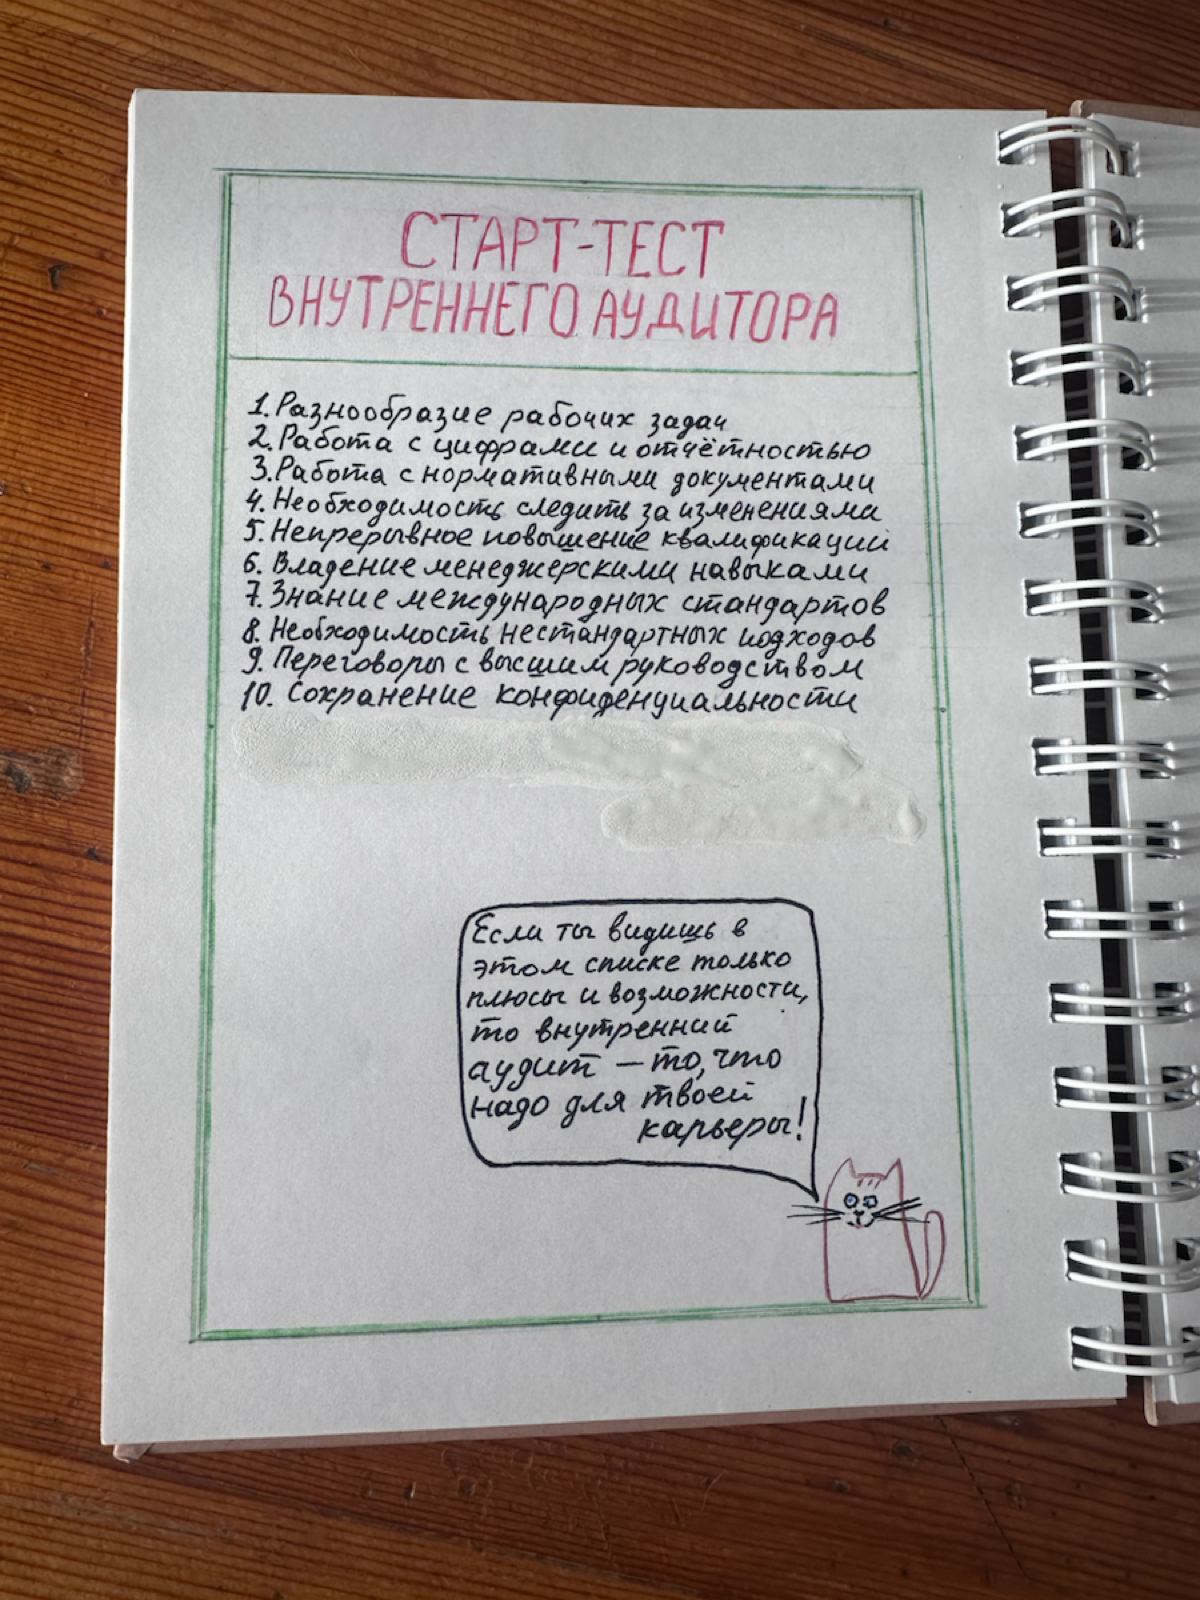 СТАРТ-ТЕСТ
ВНУТРЕННЕГО АУДИТОРА
1. Разнообразие рабочих задач
2. Работа с цифрами и отчётностью
3. Работа с нормативными документами
4. Необходимость следить за изменениями
5. Непрерывное повышение квалификации
6. Владение менеджерскими навыками
7. Знание международных стандартов
8. Необходимость нестандартных подходов
9. Переговоры с высшим руководством
10. Сохранение конфиденциальности
Если ты видишь в
этом списке только
плюсы и возможности,
то внутренний
аудит — то, что
надо для твоей
карьеры!